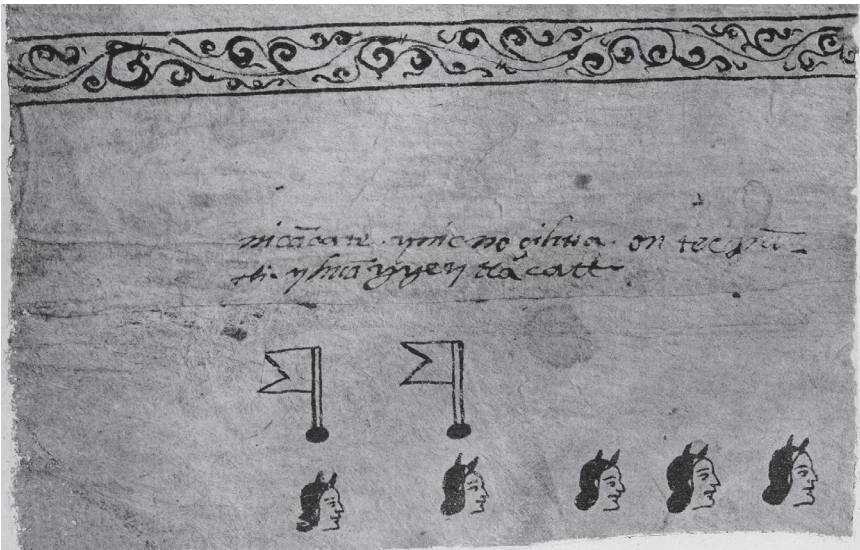 nicācate . ynicno çihua . on tecpā-
tli . yhuā yyey tlācatl